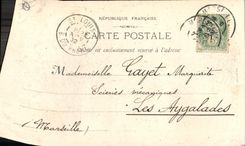 RÉPUBLIQUE FRANÇAISE
CARTE POSTALE
Ce côté est exclusivement réservé à l'adresse
Mademoiselle Gayet Marguerite
Scieries mécaniques
Les Aygalades
(Marseille)